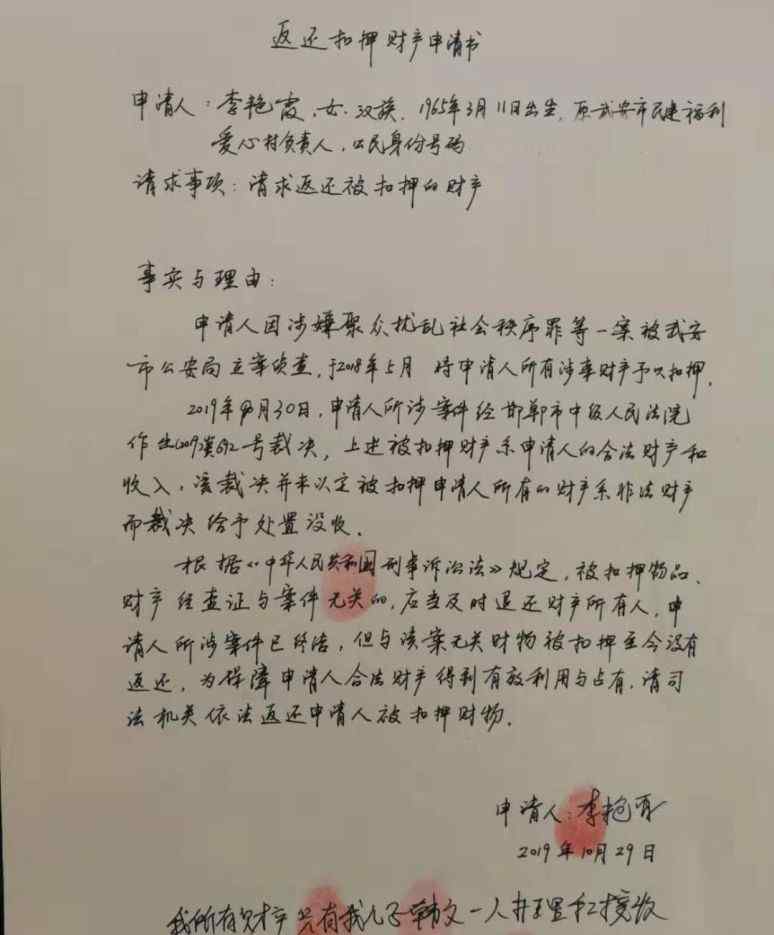 返还扣押财产申请书
申请人：李艳霞，女，汉族，1965年3月11日出生，原武安市民建福利
爱心村负责人，公民身份号码
请求事项：请求返还被扣押的财产
事实与理由：
申请人因涉嫌聚众扰乱社会秩序罪等一案被武安
市公安局立案侦查，于2018年5月 将申请人所有涉案财产予以扣押。
2019年 月30日，申请人所涉案件经邯郸市中级人民法院
作出 692号裁决，上述被扣押财产系申请人的合法财产和
收入，该裁决并未认定被扣押申请人所有的财产系非法财产
而裁决给予处置没收。
根据《中华人民共和国刑事诉讼法》规定，被扣押物品、
财产经查证与案件无关的，应当及时退还财产所有人，申
请人所涉案件已终结，但与该案无关财物被扣押至今没有
返还，为保障申请人合法财产得到有效利用与占有，请司
法机关依法返还申请人被扣押财物。
申请人：李艳霞
2019年10月29日
我所有财产只有我儿子韩文一人 和接收